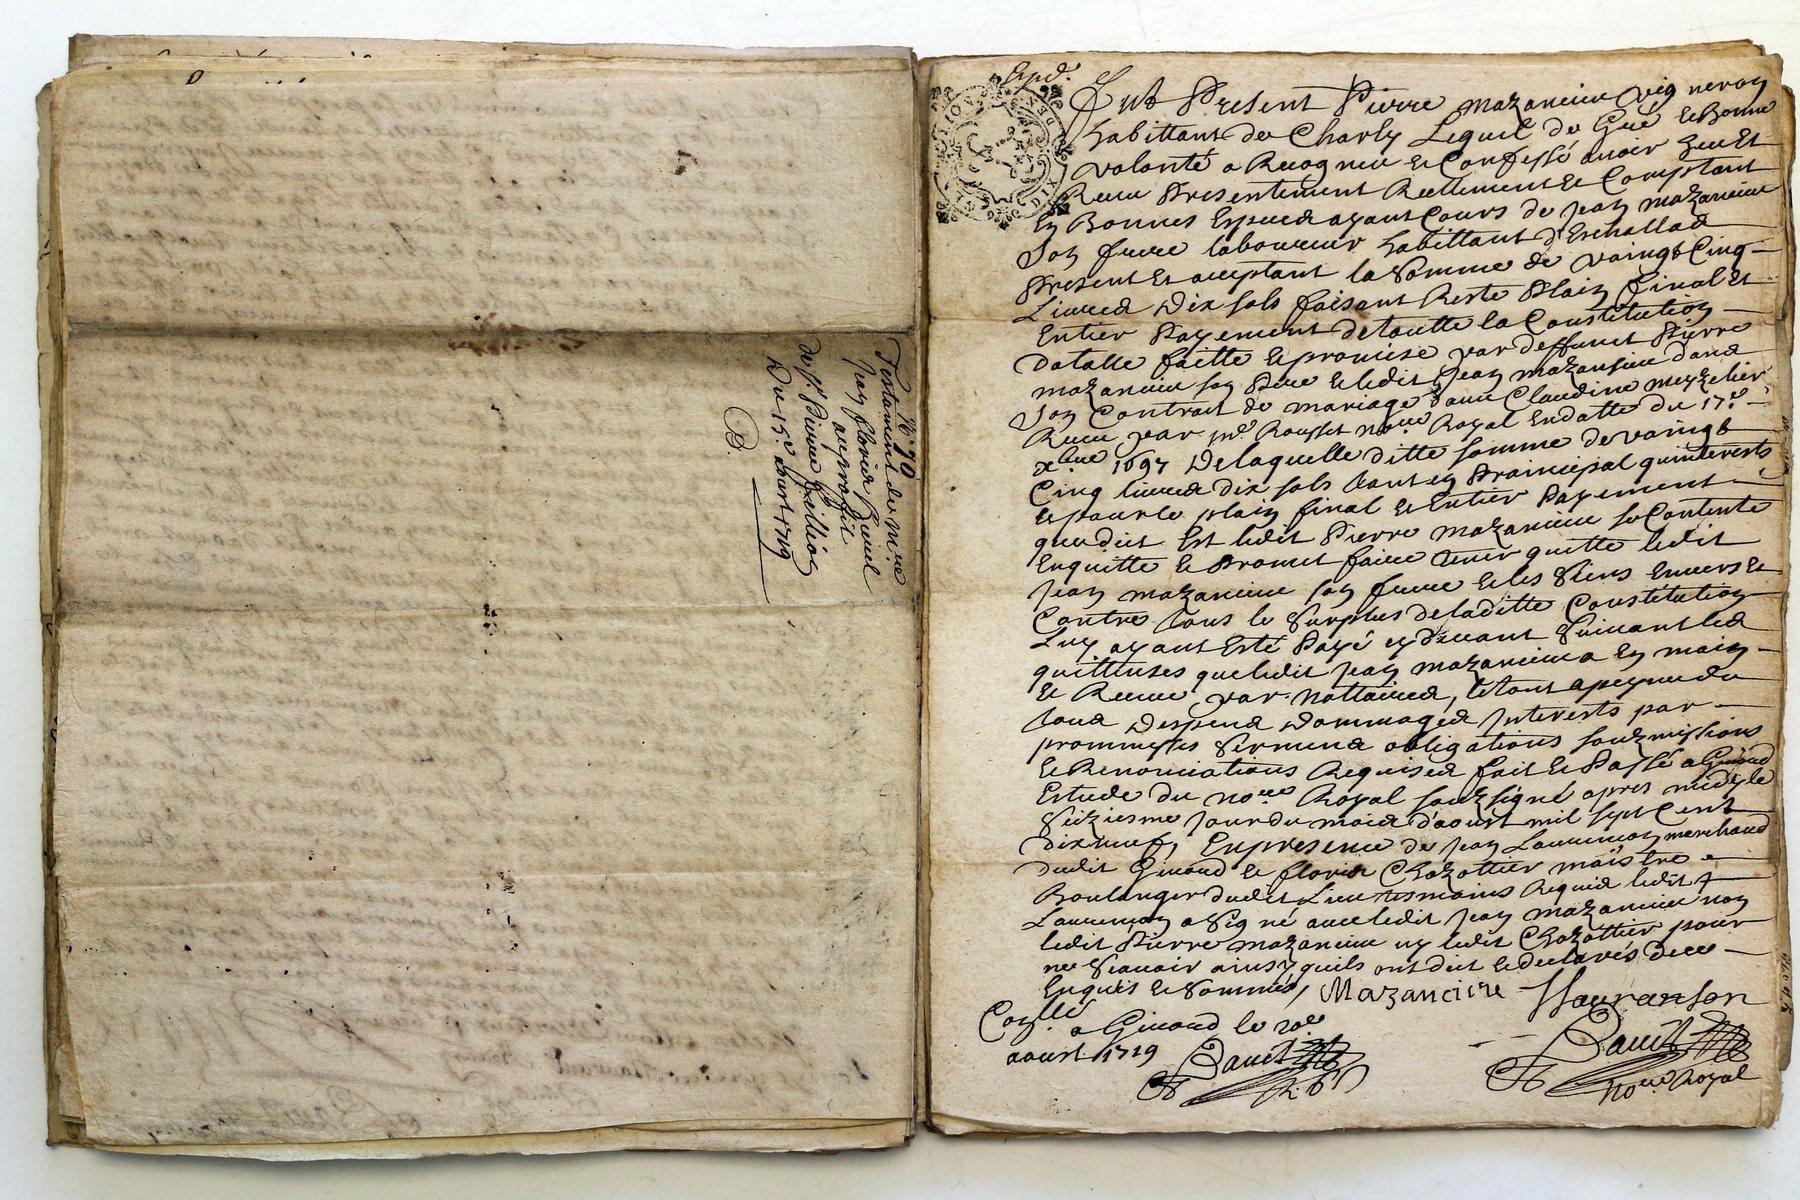 N.° 70
Testament de m.re
Jean floris Pinel
au proffit
de s.r Pierre
Du 15.e aoust 1719
B.
Exp.é
GENERATION DE LYON DIX D
Fut Present Pierre mazancieu vigneron
habittant de Charly Lequel de Gré & Bonne
volonté a Recogneu & Confessé avoir heu Et
Receu Presentement Reellement & Comptant
En Bonnes Especes ayant Cours de Jean mazancieu
son frere laboureur habittant d'Eschallas
Present Et acceptant la Somme de vaingt Cinq
Livres Dix sols faisant Reste Plain final Et
Entier Payement de toutte la Constitution
Dotalle faitte & promise par deffunct Pierre
mazancieu son Pere & ledit Jean mazancieu dans
son Contract de mariage d'avec Claudine
Receu par m.e Rousset no.re Royal En datte du 17.e
xbre 1697 De laquelle ditte somme de vaingt
Cinq livres Dix sols tant en Principal qu'interests
& pour le plain final & Entier Payement
que dict Est ledit Pierre mazancieu se Contente
En quitte & Promet faire tenir quitte ledit
Jean mazancieu son frere & les Siens Envers Et
Contre tous le Surplus de laditte Constitution
Luy ayant Esté Payé cy devant Suivant les
quittances que ledit Jean mazancieu a En main
& Receue par Nottaires, le tout a peyne de
tous Despens Dommages Interests par
promesses Serments obligations soubzmissions
& Renonciations Requises fait & Passé a Givord
Estude du no.re Royal soubzsigné apres midy le
Seiziesme Jour du mois d'aoust mil sept Cent
dix neuf, En presence de Jean Laurencon marchand
dudit Givord & floris Chazottier maistre
Boulanger dudit Lieu tesmoins Requis ledit
Laurencon a Signé avec ledit Jean mazancieu non
ledit Pierre mazancieu ny ledit Chazottier pour
ne Scavoir ainsy quils ont dict & declarés de ce
Enquis & Sommés, Mazancieu Lauranson
Con.llé
a Givord le 20e
aoust 1719
no.re Royal